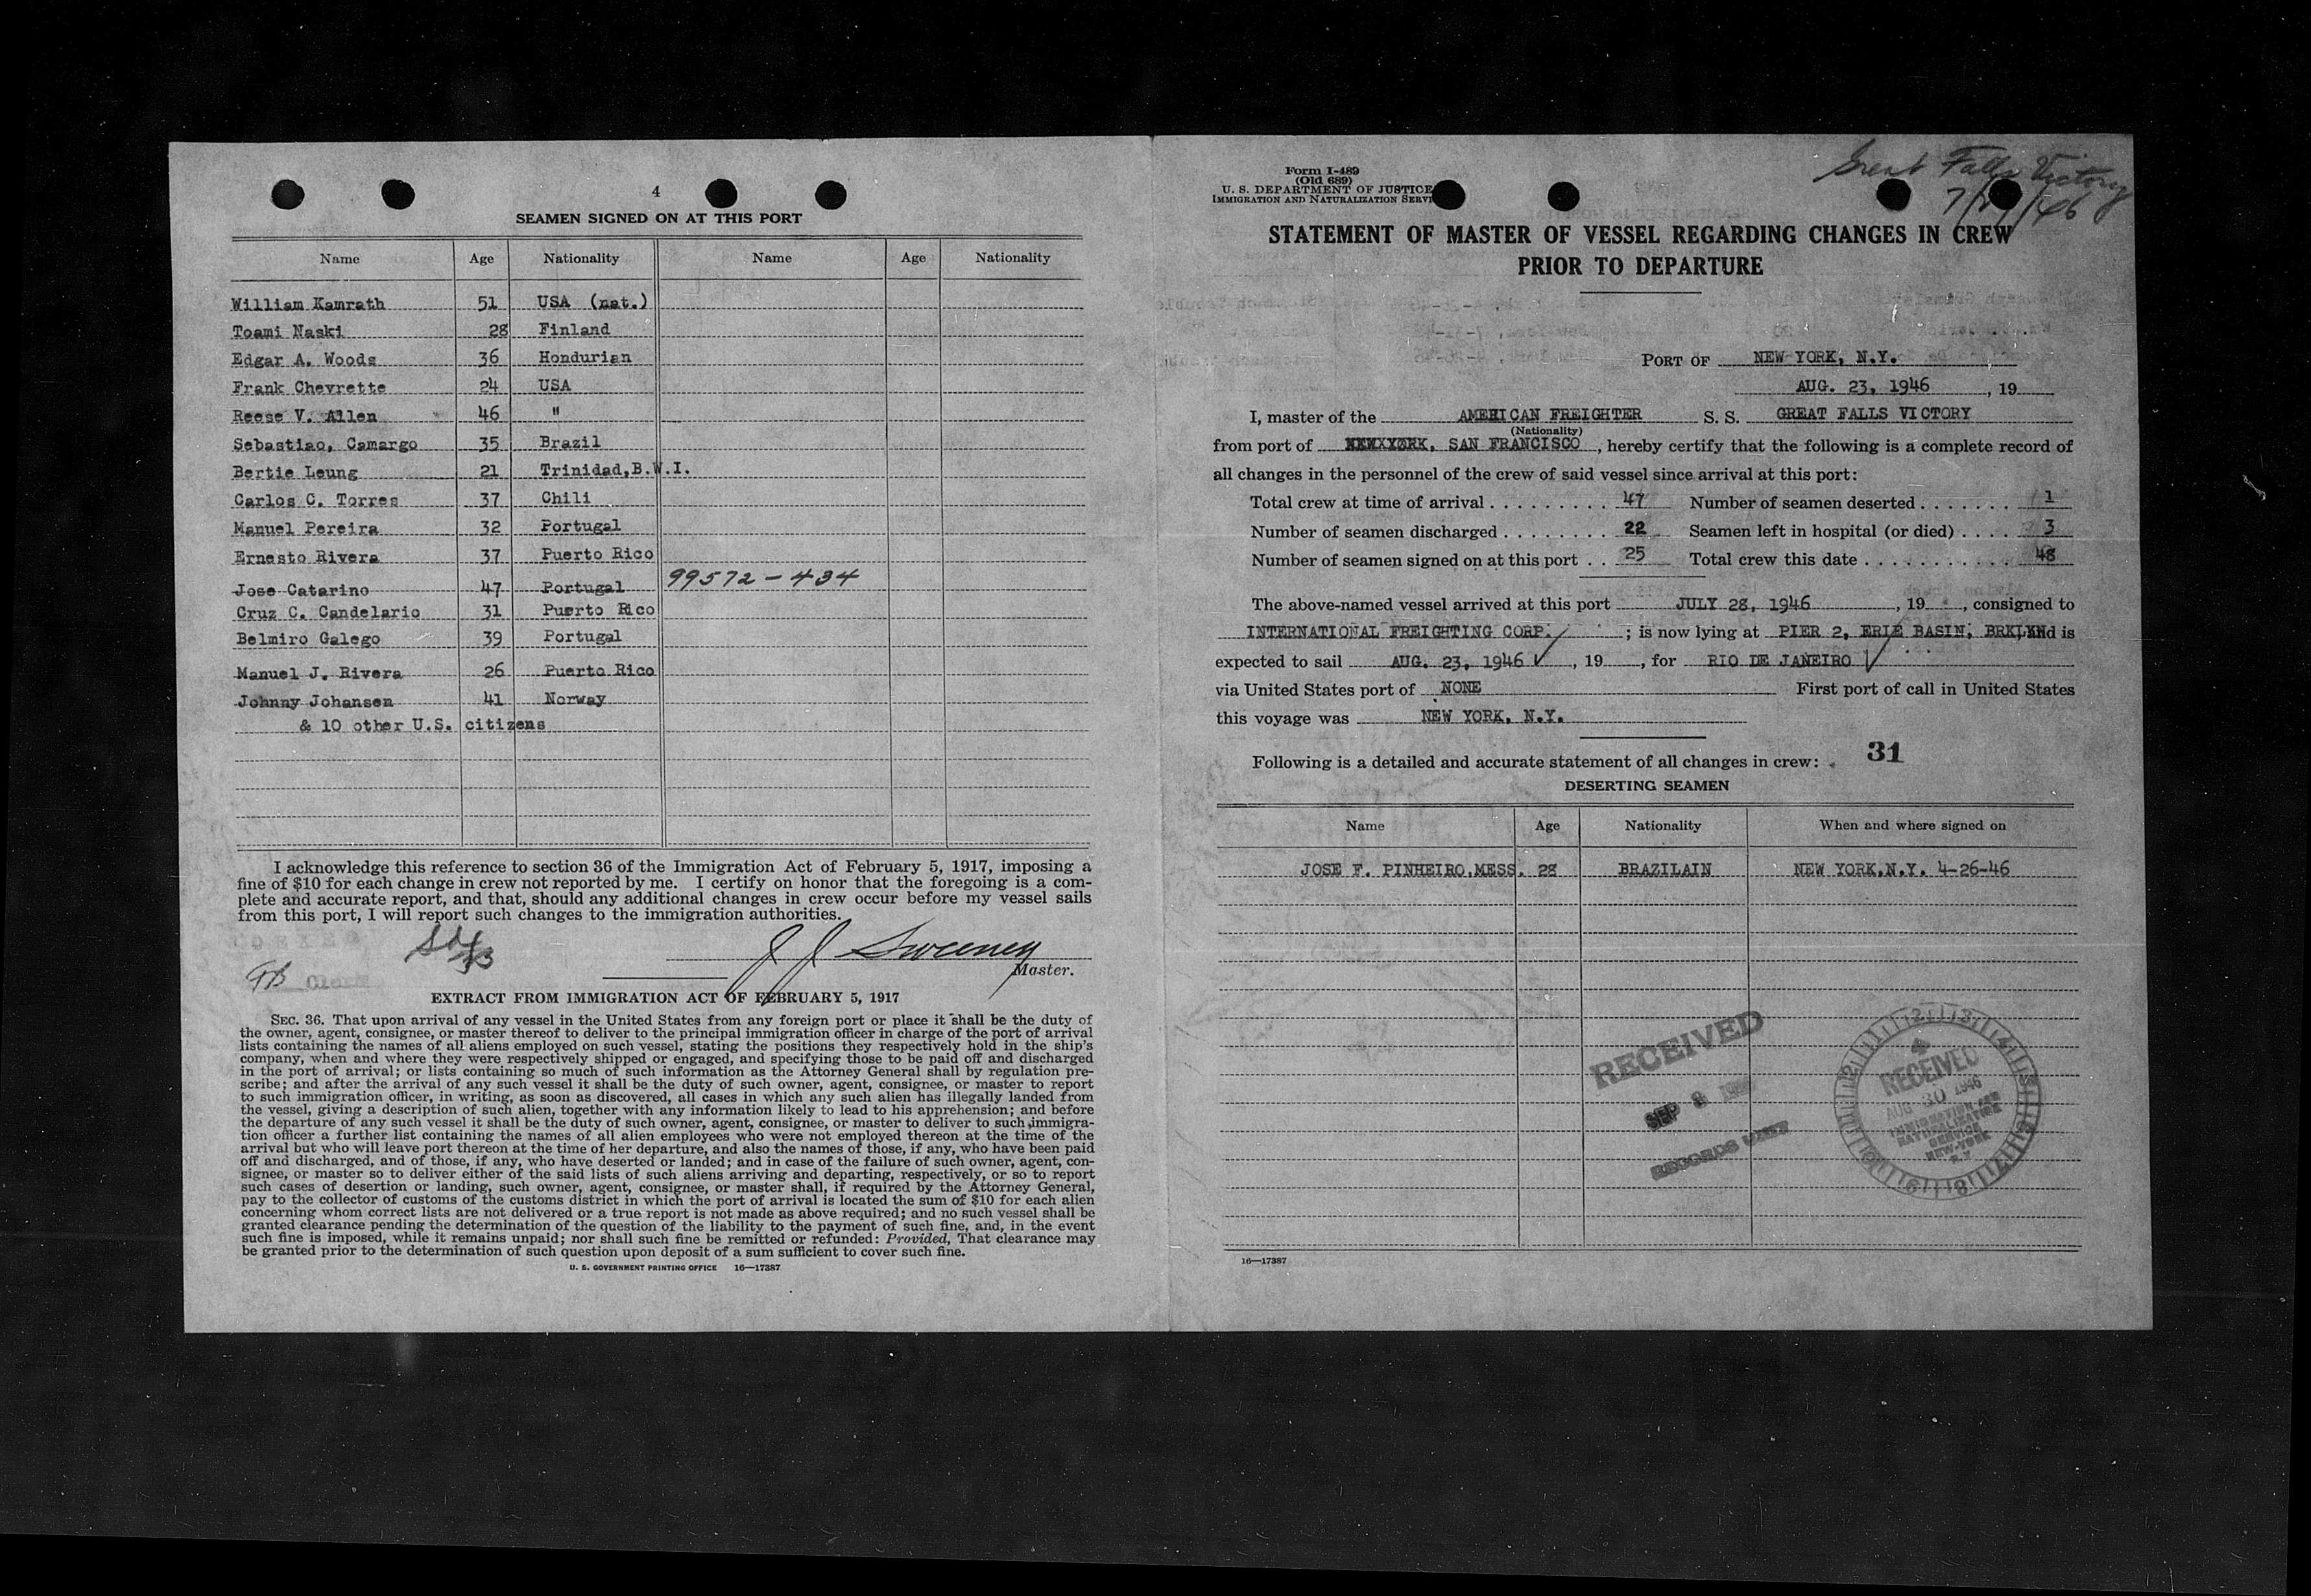 4
SEAMEN SIGNED ON AT THIS PORT
Name Age Nationality Name Age Nationality
William Kamrath 51 USA (nat.)
Toami Naski 28 Finland
Edgar A. Woods 36 Hondurian
Frank Chevrette 24 USA
Reese V. Allen 46 "
Sebastiao, Camargo 35 Brazil
Bertie Leung 21 Trinidad,B.W.I.
Carlos C. Torres 37 Chili
Manuel Pereira 32 Portugal
Ernesto Rivera 37 Puerto Rico
Jose Catarino 47 Portugal 99572-434
Cruz C. Candelario 31 Puerto Rico
Belmiro Galego 39 Portugal
Manuel J. Rivera 26 Puerto Rico
Johnny Johansen 41 Norway
& 10 other U.S. citizens
I acknowledge this reference to section 36 of the Immigration Act of February 5, 1917, imposing a
fine of $10 for each change in crew not reported by me. I certify on honor that the foregoing is a com-
plete and accurate report, and that, should any additional changes in crew occur before my vessel sails
from this port, I will report such changes to the immigration authorities.
J J Sweeney
Master.
EXTRACT FROM IMMIGRATION ACT OF FEBRUARY 5, 1917
SEC. 36. That upon arrival of any vessel in the United States from any foreign port or place it shall be the duty of
the owner, agent, consignee, or master thereof to deliver to the principal immigration officer in charge of the port of arrival
lists containing the names of all aliens employed on such vessel, stating the positions they respectively hold in the ship's
company, when and where they were respectively shipped or engaged, and specifying those to be paid off and discharged
in the port of arrival; or lists containing so much of such information as the Attorney General shall by regulation pre-
scribe; and after the arrival of any such vessel it shall be the duty of such owner, agent, consignee, or master to report
to such immigration officer, in writing, as soon as discovered, all cases in which any such alien has illegally landed from
the vessel, giving a description of such alien, together with any information likely to lead to his apprehension; and before
the departure of any such vessel it shall be the duty of such owner, agent, consignee, or master to deliver to such immigra-
tion officer a further list containing the names of all alien employees who were not employed thereon at the time of the
arrival but who will leave port thereon at the time of her departure, and also the names of those, if any, who have been paid
off and discharged, and of those, if any, who have deserted or landed; and in case of the failure of such owner, agent, con-
signee, or master so to deliver either of the said lists of such aliens arriving and departing, respectively, or so to report
such cases of desertion or landing, such owner, agent, consignee, or master shall, if required by the Attorney General,
pay to the collector of customs of the customs district in which the port of arrival is located the sum of $10 for each alien
concerning whom correct lists are not delivered or a true report is not made as above required; and no such vessel shall be
granted clearance pending the determination of the question of the liability to the payment of such fine, and, in the event
such fine is imposed, while it remains unpaid; nor shall such fine be remitted or refunded: Provided, That clearance may
be granted prior to the determination of such question upon deposit of a sum sufficient to cover such fine.
U. S. GOVERNMENT PRINTING OFFICE 16—17387
Great Falls Victory
Form I-489
(Old 689)
U. S. DEPARTMENT OF JUSTICE
IMMIGRATION AND NATURALIZATION SERVI
STATEMENT OF MASTER OF VESSEL REGARDING CHANGES IN CREW
PRIOR TO DEPARTURE
PORT OF NEW YORK, N.Y.
AUG. 23, 1946 , 19
I, master of the AMERICAN FREIGHTER S. S. GREAT FALLS VICTORY
(Nationality)
from port of SAN FRANCISCO , hereby certify that the following is a complete record of
all changes in the personnel of the crew of said vessel since arrival at this port:
Total crew at time of arrival . . . . . . . . . 47 Number of seamen deserted . . . . . . . 1
Number of seamen discharged . . . . . . . . 22 Seamen left in hospital (or died) . . . . 3
Number of seamen signed on at this port . . 25 Total crew this date . . . . . . . . . . . 48
The above-named vessel arrived at this port JULY 28, 1946 , 19 , consigned to
INTERNATIONAL FREIGHTING CORP. ; is now lying at PIER 2, ERIE BASIN, BRKLYN and is
expected to sail AUG. 23, 1946 , 19 , for RIO DE JANEIRO
via United States port of NONE First port of call in United States
this voyage was NEW YORK, N.Y.
Following is a detailed and accurate statement of all changes in crew: 31
DESERTING SEAMEN
Name Age Nationality When and where signed on
JOSE F. PINHEIRO,MESS. 28 BRAZILAIN NEW YORK,N.Y. 4-26-46
RECEIVED
SEP
RECORDS UNIT
RECEIVED
AUG 30 1946
IMMIGRATION AND
NATURALIZATION
SERVICE
NEW YORK
N.Y.
16—17387